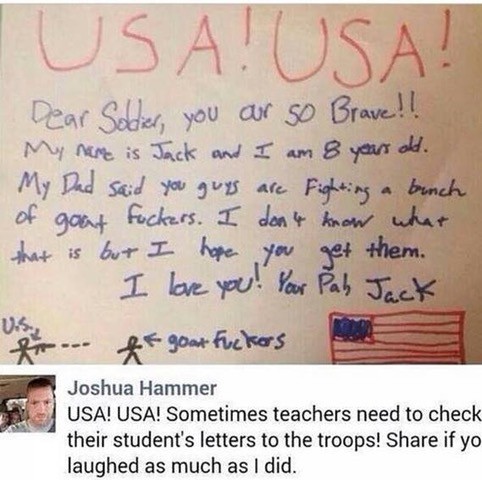 USA! USA!
Dear Soldier, you ar so Brave!!
My name is Jack and I am 8 years old.
My Dad said you guys are Fighting a bunch
of goat fuckers. I don't know what
that is but I hope you get them.
I love you! Your Pal, Jack
U.S.
goat fuckers
Joshua Hammer
USA! USA! Sometimes teachers need to check
their student's letters to the troops! Share if yo
laughed as much as I did.